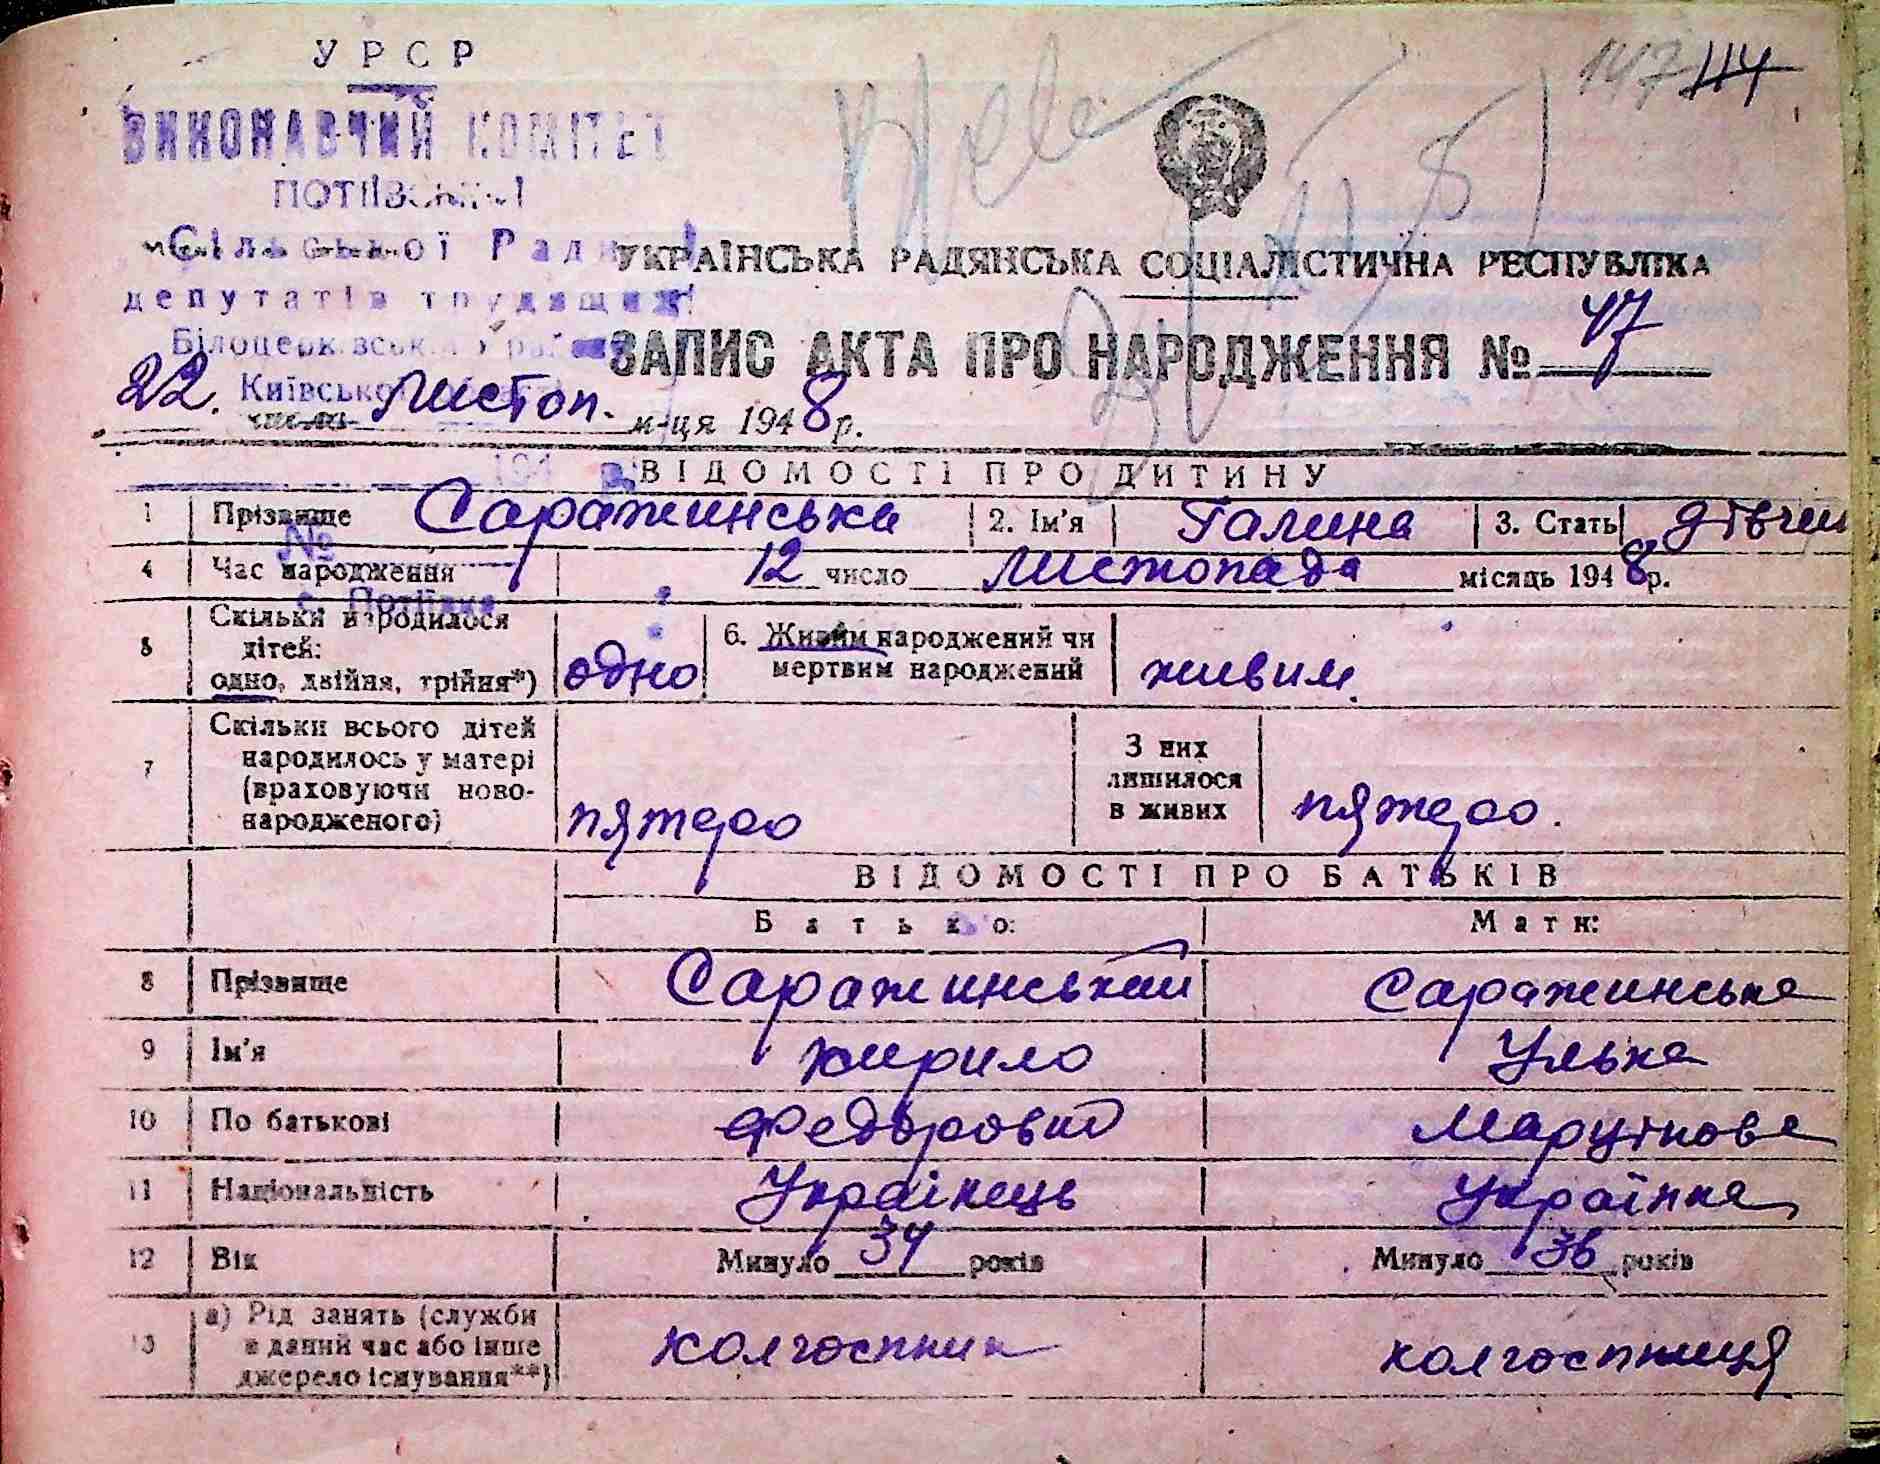 УРСР
ВИКОНАВЧИЙ КОМІТЕТ
147 114
ПОТІЇВСЬКОЇ
Сільської Ради
депутатів трудящих
УКРАЇНСЬКА РАДЯНСЬКА СОЦІАЛІСТИЧНА РЕСПУБЛІКА
Білоцерківського району
ЗАПИС АКТА ПРО НАРОДЖЕННЯ № 47
Київської
22. числа Листоп. м-ця 1948 р.
194
ВІДОМОСТІ ПРО ДИТИНУ
1 Прізвище Саражинська 2. Ім'я Галина 3. Стать дівчин
№
4 Час народження 12 число листопада місяць 1948 р.
с. Потіївка
5 Скільки народилося
дітей:
одно, двійня, трійня*) одно 6. Живим народжений чи
мертвим народжений живим.
7 Скільки всього дітей
народилось у матері
(враховуючи ново-
народженого) пятеро З них
лишилося
в живих пятеро.
ВІДОМОСТІ ПРО БАТЬКІВ
Батько: Мати:
8 Прізвище Саражинський Саражинська
9 Ім'я Кирило Улька
10 По батькові Федорович
11 Національність Українець Українка
12 Вік Минуло 34 років Минуло 36 років
13 а) Рід занять (служби
в даний час або інше
джерело існування**) колгоспник колгоспниця